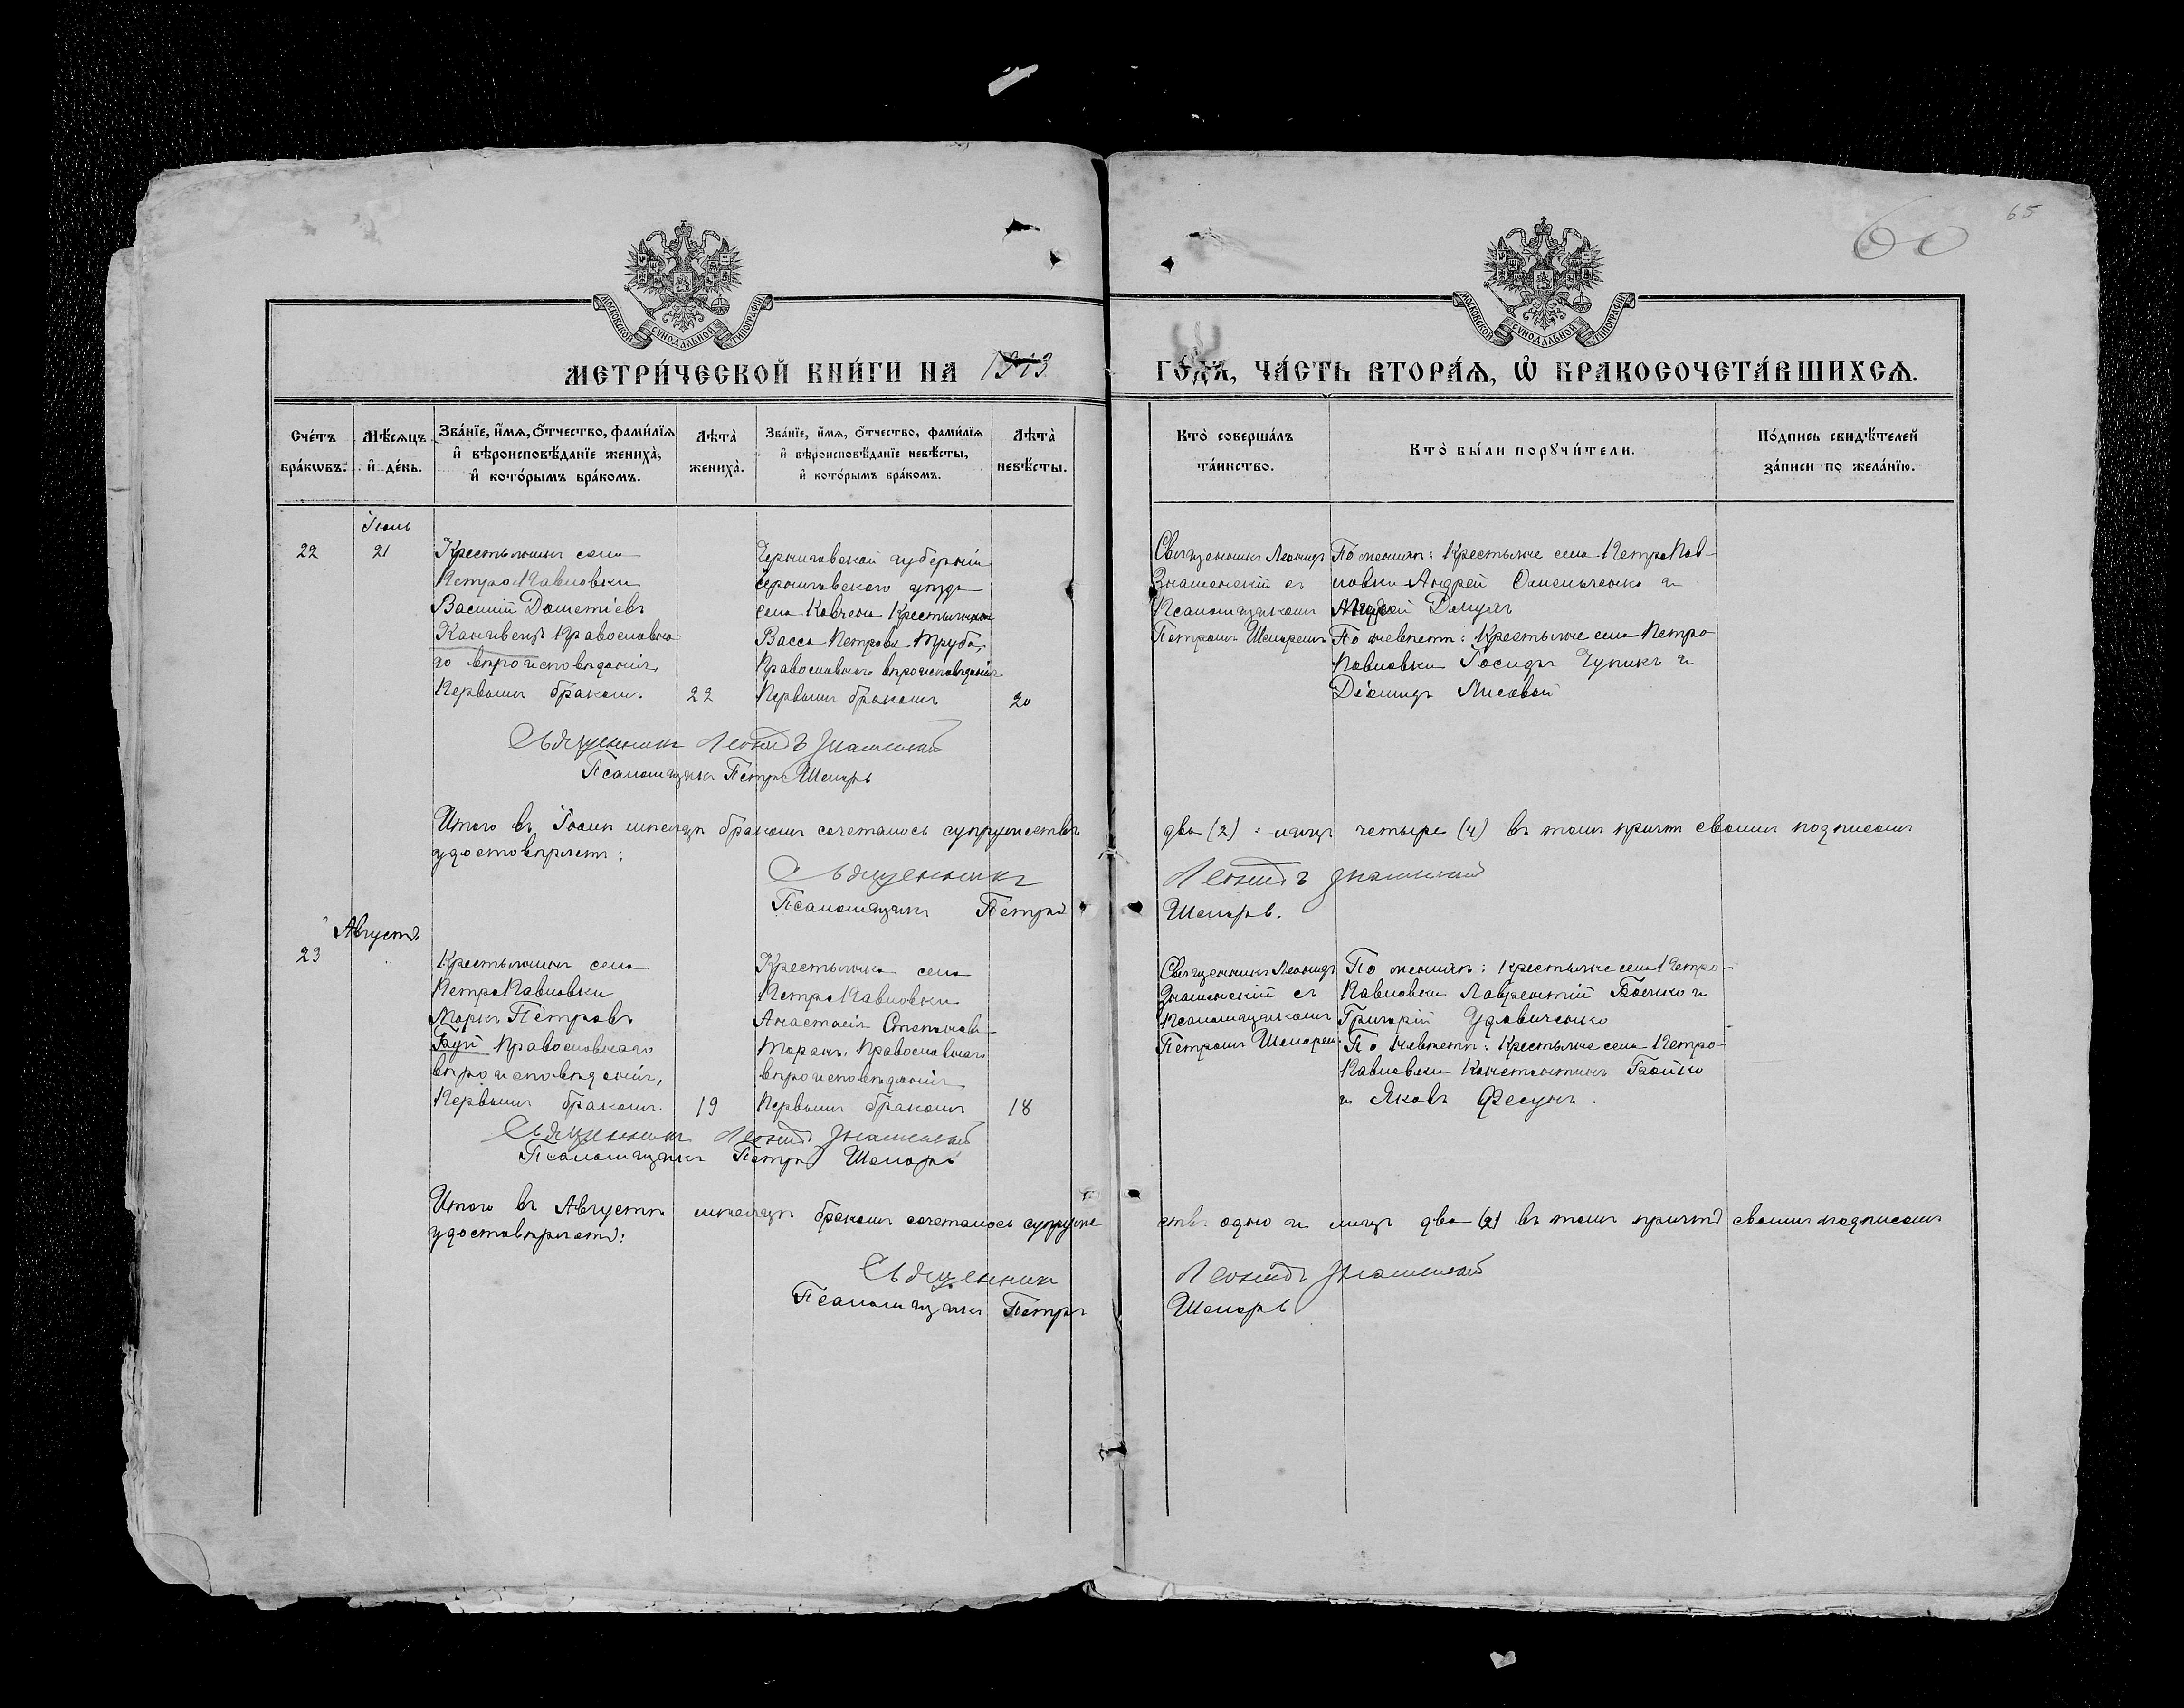 60
65
МОСКОВСКОЙ СѴНОДАЛЬНОЙ ТИПОГРАФІИ
МОСКОВСКОЙ СѴНОДАЛЬНОЙ ТИПОГРАФІИ
МЕТРИ́ЧЕСКОЙ КНИ́ГИ НА 1913
ГО́ДЪ, ЧА́СТЬ ВТОРА́Я, Ѡ҆ БРАКОСОЧЕТА́ВШИХСЯ.
Сче́тъ бра́кѡвъ.
Мѣ́сяцъ и҆ де́нь.
Зва́нїе, и҆́мя, ѻ҆́тчество, фами́лїя
и҆ вѣроисповѣ́данїе жениха̀,
и҆ кото́рымъ бра́комъ.
Лѣта̀ жениха̀.
Зва́нїе, и҆́мя, ѻ҆́тчество, фами́лїя
и҆ вѣроисповѣ́данїе невѣ́сты,
и҆ кото́рымъ бра́комъ.
Лѣта̀ невѣ́сты.
Кто̀ соверша́лъ та́инство.
Кто̀ бы́ли порꙋчи́тели.
По́дпись свидѣ́телей за́писи по жела́нїю.
Іюль
22
21
Крестьянинъ села
Петро Павловки
Василій Дометіевъ
Православна-
го вѣроисповѣданія,
Первымъ бракомъ
22
Черниговской губерніи
Черниговскаго уѣзда
села Крестьянка
Васса Петрова Труба,
Православнаго вѣроисповѣданія
Первымъ бракомъ
20
Священникъ Леонидъ
Знаменскій съ
Псаломщикомъ
Петромъ
По женихѣ: Крестьяне села Петро Пав-
ловки Андрей Омельченко и
По невѣстѣ: Крестьяне села Петро
Павловки Іосифъ Чупикъ и
Діомидъ Лисовой
Священникъ Леонидъ Знаменскій
Псаломщикъ Петръ
Итого въ Іюлѣ мѣсяцѣ бракомъ сочеталось супружествъ
два (2) : лицъ четыре (4) въ томъ причтъ своимъ подписомъ
удостовѣряетъ:
Священникъ Леонидъ Знаменскій
Псаломщикъ Петръ
Августъ
23
Крестьянинъ села
Петро Павловки
Маркъ Петровъ
Буй Православнаго
вѣроисповѣданія,
Первымъ бракомъ.
19
Крестьянка села
Петро Павловки
Анастасія Степанова
Таранъ, Православнаго
вѣроисповѣданія
Первымъ бракомъ
18
Священникъ Леонидъ
Знаменскій съ
Псаломщикомъ
Петромъ
По женихѣ: Крестьяне села Петро-
Павловки Лаврентій Бойко и
Григорій Удовиченко
По невѣстѣ: Крестьяне села Петро-
Павловки Константинъ Бойко
и Яковъ Фесунъ.
Священникъ Леонидъ Знаменскій
Псаломщикъ Петръ
Итого въ Августѣ мѣсяцѣ бракомъ сочеталось супруже
ствъ одно и лицъ два (2) въ томъ причтъ своимъ подписомъ
удостовѣряетъ:
Священникъ Леонидъ Знаменскій
Псаломщикъ Петръ